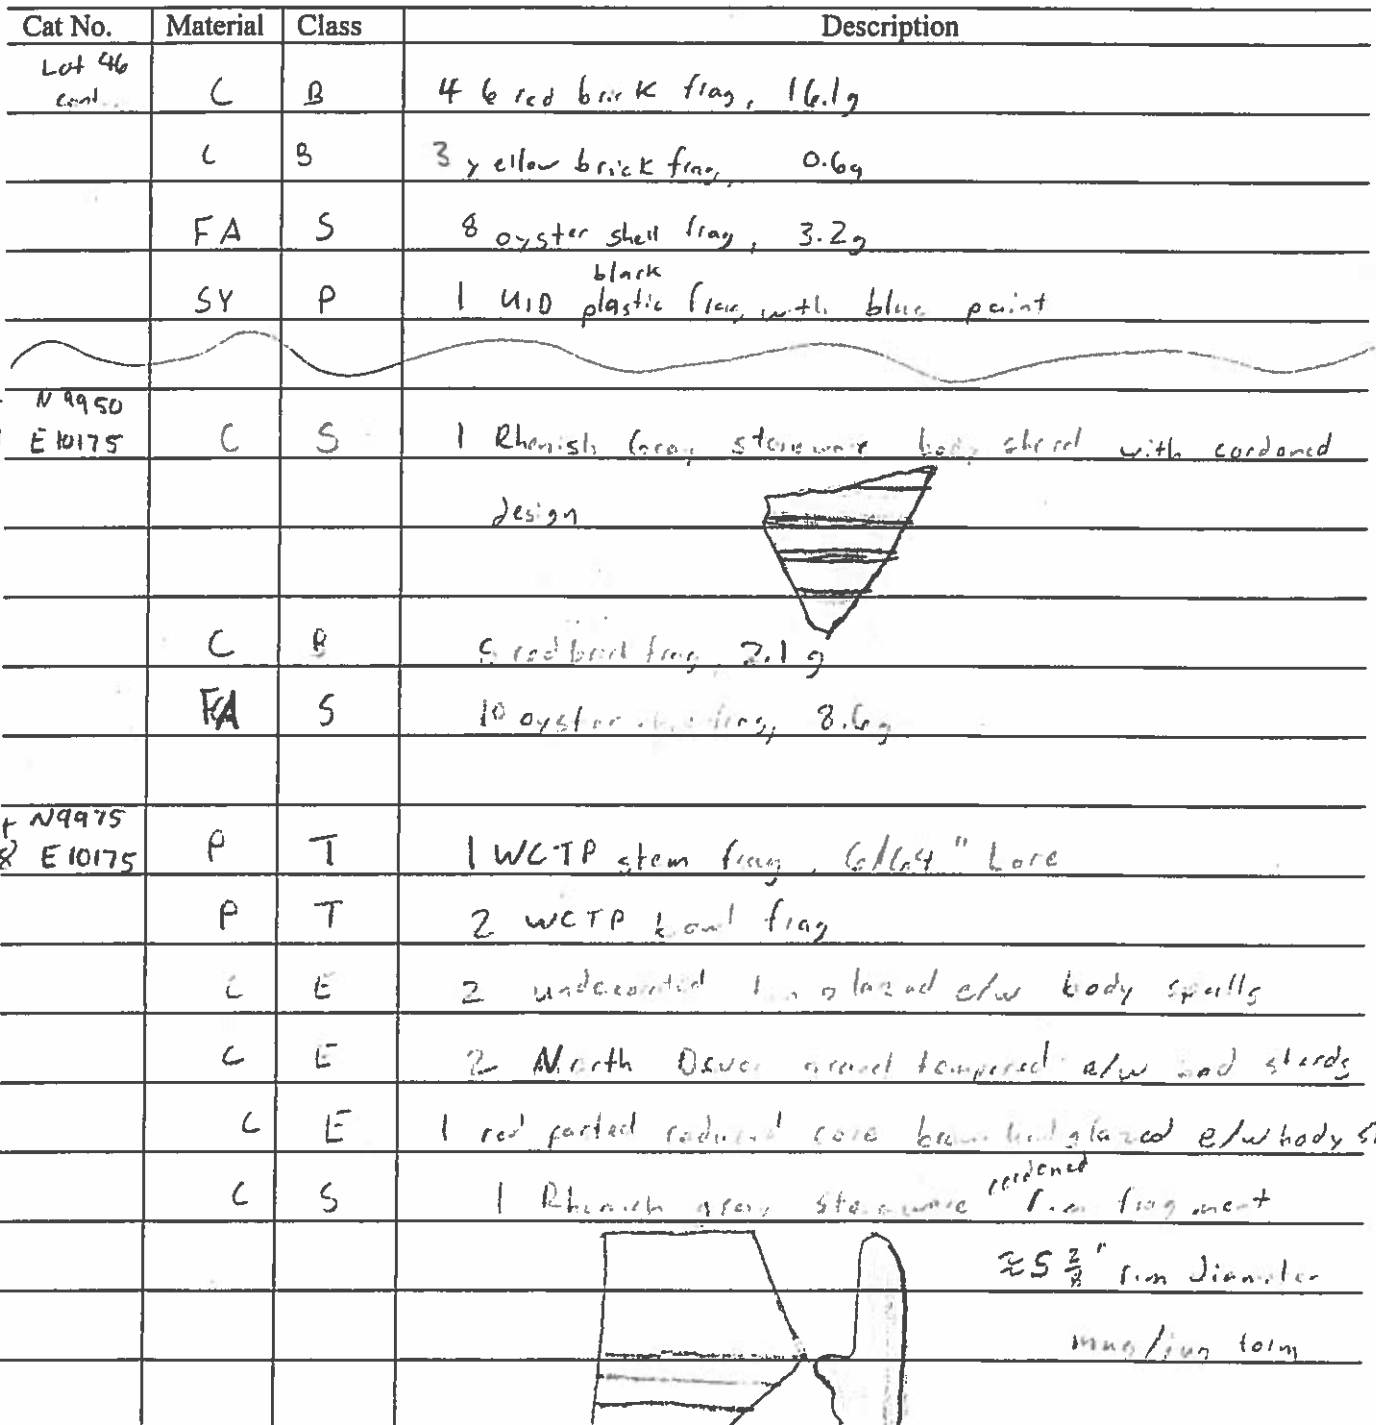 Cat No. Material Class Description
Lot 46
cont. C B 4 6 red brick frag, 16.1g
C B 3 yellow brick frag, 0.6g
FA S 8 oyster shell frag, 3.2g
black
SY P 1 UID plastic frag with blue paint
N 9950
E 10175 C S 1 Rhenish Gray stoneware body sherd with cordoned
design
C B red brick frag 2.1g
FA S 10 oyster frag, 8.6g
N9975
E 10175 P T 1 WCTP stem frag, 6/64" bore
P T 2 WCTP bowl frag
C E 2 undecorated glazed e/w body spalls
C E 2 North Devon gravel tempered e/w sherds
C E 1 red pasted reduced core brown glazed e/w body
cordoned
C S 1 Rhenish gray stoneware rim fragment
≈5 2/8" rim diameter
mug/jug form